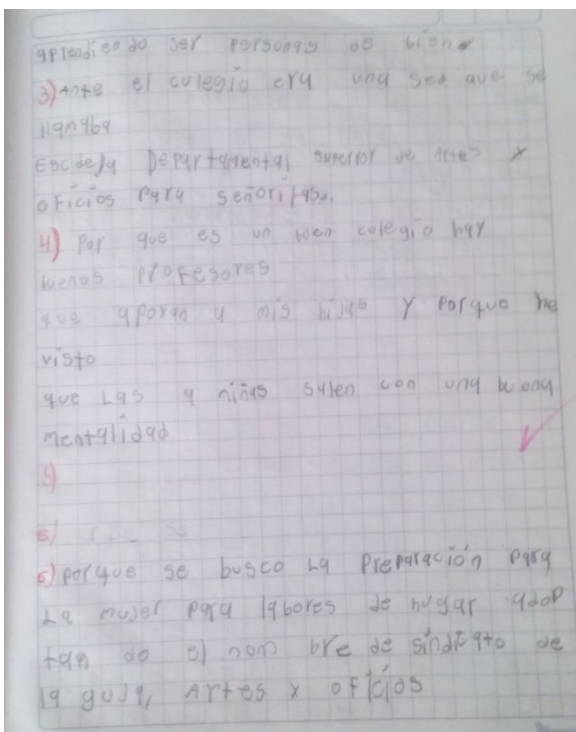 aprendiendo ser personas de bien
3) Ante el colegio era una sed que se
llamaba
Escuela Departamental superior de Artes y
oficios para señoritas.
4) Por que es un buen colegio hay
buenos profesores
que apoyan a mis hijas y porque he
visto
que Las niñas salen con una buena
mentalidad
5)
6)
6) porque se busco La preparación para
La mujer para labores de hogar adop
tan do el nom bre de sindicato de
la guja, Artes y oficios